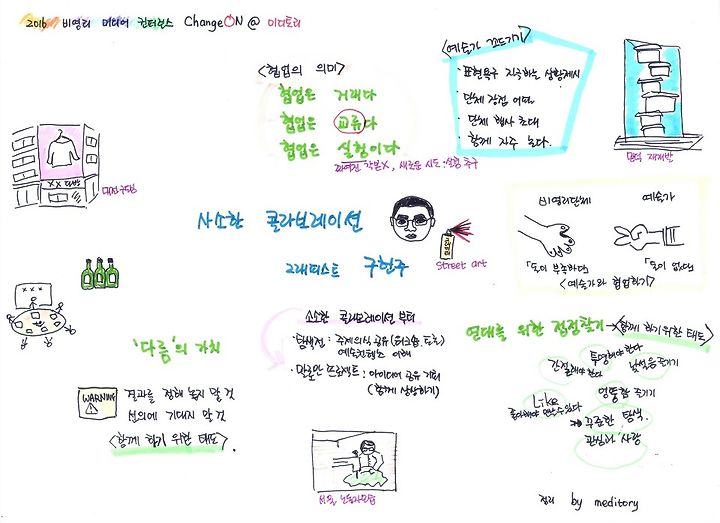 2016 비영리 미디어 컨퍼런스 ChangeON @ 미디토리
<협업의 의미>
협업은 거래다
협업은 교류다
협업은 실험이다
짜여진 각본X, 새로운 시도·실험 추구
<예술가 꼬드기기>
· 표현욕구 자극하는 상황제시
· 단체 강점 어필
· 단체 행사 초대
· 함께 자주 논다.
만덕 재개발
XX 다방
사소한 콜라보레이션
그래피티스트 구헌주
Street art
비영리단체
예술가
「돈이 부족하다」
「돈이 없다」
<예술가와 협업하기>
XXX
'다름'의 가치
WARNING
결과를 정해 놓지 말 것
선의에 기대지 말 것
<함께 하기 위한 태도>
소소한 콜라보레이션 부터
· 탐색전 : 주제의식 공유 (워크숍, 토론)
예술컨텐츠 이해
· 만만한 프로젝트 : 아이디어 공유 기회
(함께 상상하기)
연대를 위한 접점찾기 → <함께 하기 위한 태도>
간절해야 한다
투명해야 한다
낯섦을 즐기기
엉뚱함 즐기기
Like
좋아해야 만날 수 있다
꾸준한 탐색.
관심과 사랑
정리 by meditory